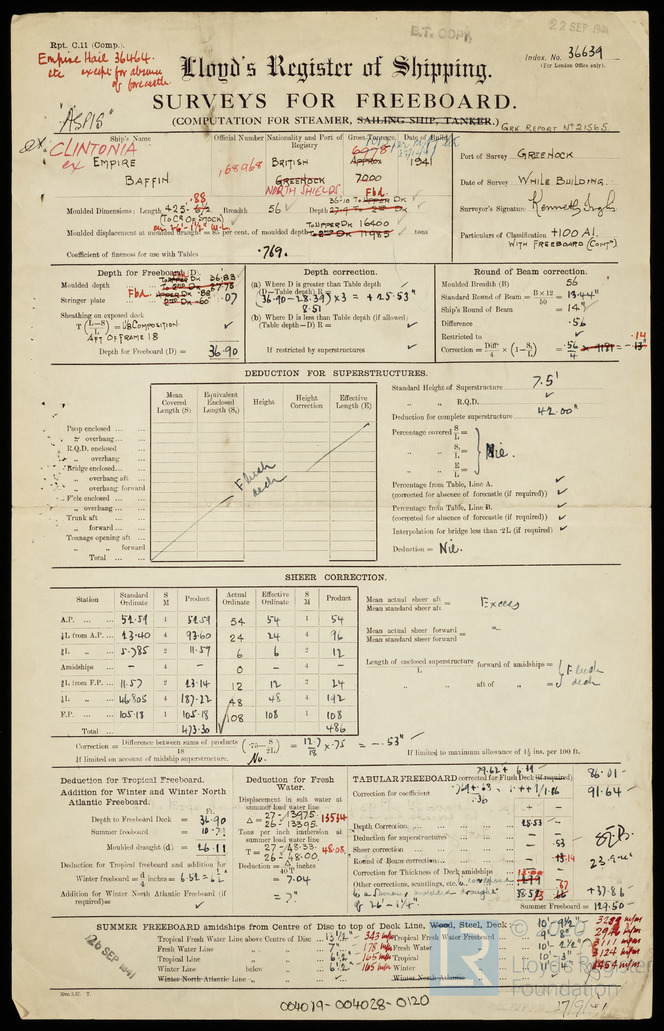 Rpt. C.11 (Comp.).
B.T. COPY
22 SEP 1941
Empire Hail 36464.
etc except for absence
of forecastle
Index. No. 36639
(For London Office only).
Lloyd's Register of Shipping.
SURVEYS FOR FREEBOARD.
(COMPUTATION FOR STEAMER, SAILING SHIP, TANKER.)
GRK. REPORT No 21565
"ASPIS"
ex. CLINTONIA
ex
Ship's Name
EMPIRE
BAFFIN
Official Number
168968
Nationality and Port of Registry
BRITISH
GREENOCK
NORTH SHIELDS
Gross Tonnage
6978
Approx
7200
Date of Build
1941
Port of Survey GREENOCK
Date of Survey WHILE BUILDING.
Surveyor's Signature
Particulars of Classification +100 A1.
WITH FREEBOARD (CONTD)
Moulded Dimensions: Length 425. .88 Breadth 56 Depth
(TO CR OF STOCK)
on 26'-1½" W.L.
Moulded displacement at moulded draught = 85 per cent. of moulded depth TO UPPER DK 16400 tons
Coefficient of fineness for use with Tables .769.
Depth for Freeboard (D).
Moulded depth 36.83
Stringer plate .07
Sheathing on exposed deck
T (L-S / L) = UB COMPOSITION
AFT OF FRAME 18
Depth for Freeboard (D) = 36.90
Depth correction.
(a) Where D is greater than Table depth
(D-Table depth) R =
(36.90 - 28.39) x 3 = + 25.53"
8.51
(b) Where D is less than Table depth (if allowed)
(Table depth-D) R =
If restricted by superstructures
Round of Beam correction.
Moulded Breadth (B) 56
Standard Round of Beam = B x 12 / 50 = 13.44"
Ship's Round of Beam = 14"
Difference .56
Restricted to
Correction = Diff. / 4 x (1 - S1 / L) = .56 / 4 = - .14
DEDUCTION FOR SUPERSTRUCTURES.
Mean Covered Length (S)
Equivalent Enclosed Length (S1)
Height
Height Correction
Effective Length (E)
Poop enclosed
" overhang
R.Q.D. enclosed
" overhang
Bridge enclosed
" overhang aft
" overhang forward
F'cle enclosed
" overhang
Trunk aft
" forward
Tonnage opening aft
" " forward
Total
Flush
deck
Standard Height of Superstructure 7.5'
" " R.Q.D.
Deduction for complete superstructure 42.00"
Percentage covered S / L =
" " S1 / L = Nil.
" " E / L =
Percentage from Table, Line A.
(corrected for absence of forecastle (if required))
Percentage from Table, Line B.
(corrected for absence of forecastle (if required))
Interpolation for bridge less than ·2L (if required)
Deduction = Nil.
SHEER CORRECTION.
Station Standard Ordinate S M Product Actual Ordinate Effective Ordinate S M Product
A.P. 52.59 1 52.59 54 54 1 54
⅙L from A.P. 23.40 4 93.60 24 24 4 96
⅓L " 5.785 2 11.57 6 6 2 12
Amidships - 4 - 0 - 4 -
⅓L from F.P. 11.57 2 23.14 12 12 2 24
⅙L " 46.805 4 187.22 48 48 4 192
F.P. 105.18 1 105.18 108 108 1 108
Total 473.30 486
Mean actual sheer aft / Mean standard sheer aft = Excess
Mean actual sheer forward / Mean standard sheer forward = "
Length of enclosed superstructure / L forward of amidships =
" " aft of " =
Flush
deck
Correction = Difference between sums of products / 18 (·75 - S / 2L) = 12.7 / 18 x .75 = - .53"
If limited on account of midship superstructure. No.
If limited to maximum allowance of 1½ ins. per 100 ft.
Deduction for Tropical Freeboard.
Addition for Winter and Winter North Atlantic Freeboard.
Ft.
Depth to Freeboard Deck = 36.90
Summer freeboard = 10.79
Moulded draught (d) = 26.11
Deduction for Tropical freeboard and addition for
Winter freeboard = d / 4 inches = 6.52 = 6½"
Addition for Winter North Atlantic Freeboard (if required) =
Deduction for Fresh Water.
Displacement in salt water at summer load water line
Δ = 27 - 13975. 13534
26 - 13395.
Tons per inch immersion at summer load water line
T = 27 - 48.33. 48.08.
26 = 48.00.
Deduction = Δ / 40 T inches
= 7.04
= 7"
TABULAR FREEBOARD corrected for Flush Deck (if required)
Correction for coefficient
86.01
91.64
+ -
Depth Correction 25.53 -
Deduction for superstructures - -
Sheer correction - .53
Round of Beam correction - .14
Correction for Thickness of Deck amidships
Other corrections, scantlings, etc.
of 26'-1¼".
+37.86
Summer Freeboard = 129.50
SUMMER FREEBOARD amidships from Centre of Disc to top of Deck Line, Wood, Steel, Deck 10'-9½"
Tropical Fresh Water Line above Centre of Disc 13½" 343 m/m
Fresh Water Line " " 7" 178 m/m
Tropical Line " " 6½" 165 m/m
Winter Line below " 6½" 165 m/m
Winter North Atlantic Line " "
Tropical Fresh Water Freeboard 9'-8"
Fresh Water " 10'-2½" 3111 m/m
Tropical " 10'-3" 3124 m/m
Winter " 11'-4"
Winter North Atlantic "
26 SEP 1941
17/9/41
50m.3.37. T.
© 2020
LR
Lloyd's Register
Foundation
004019-004028-0120